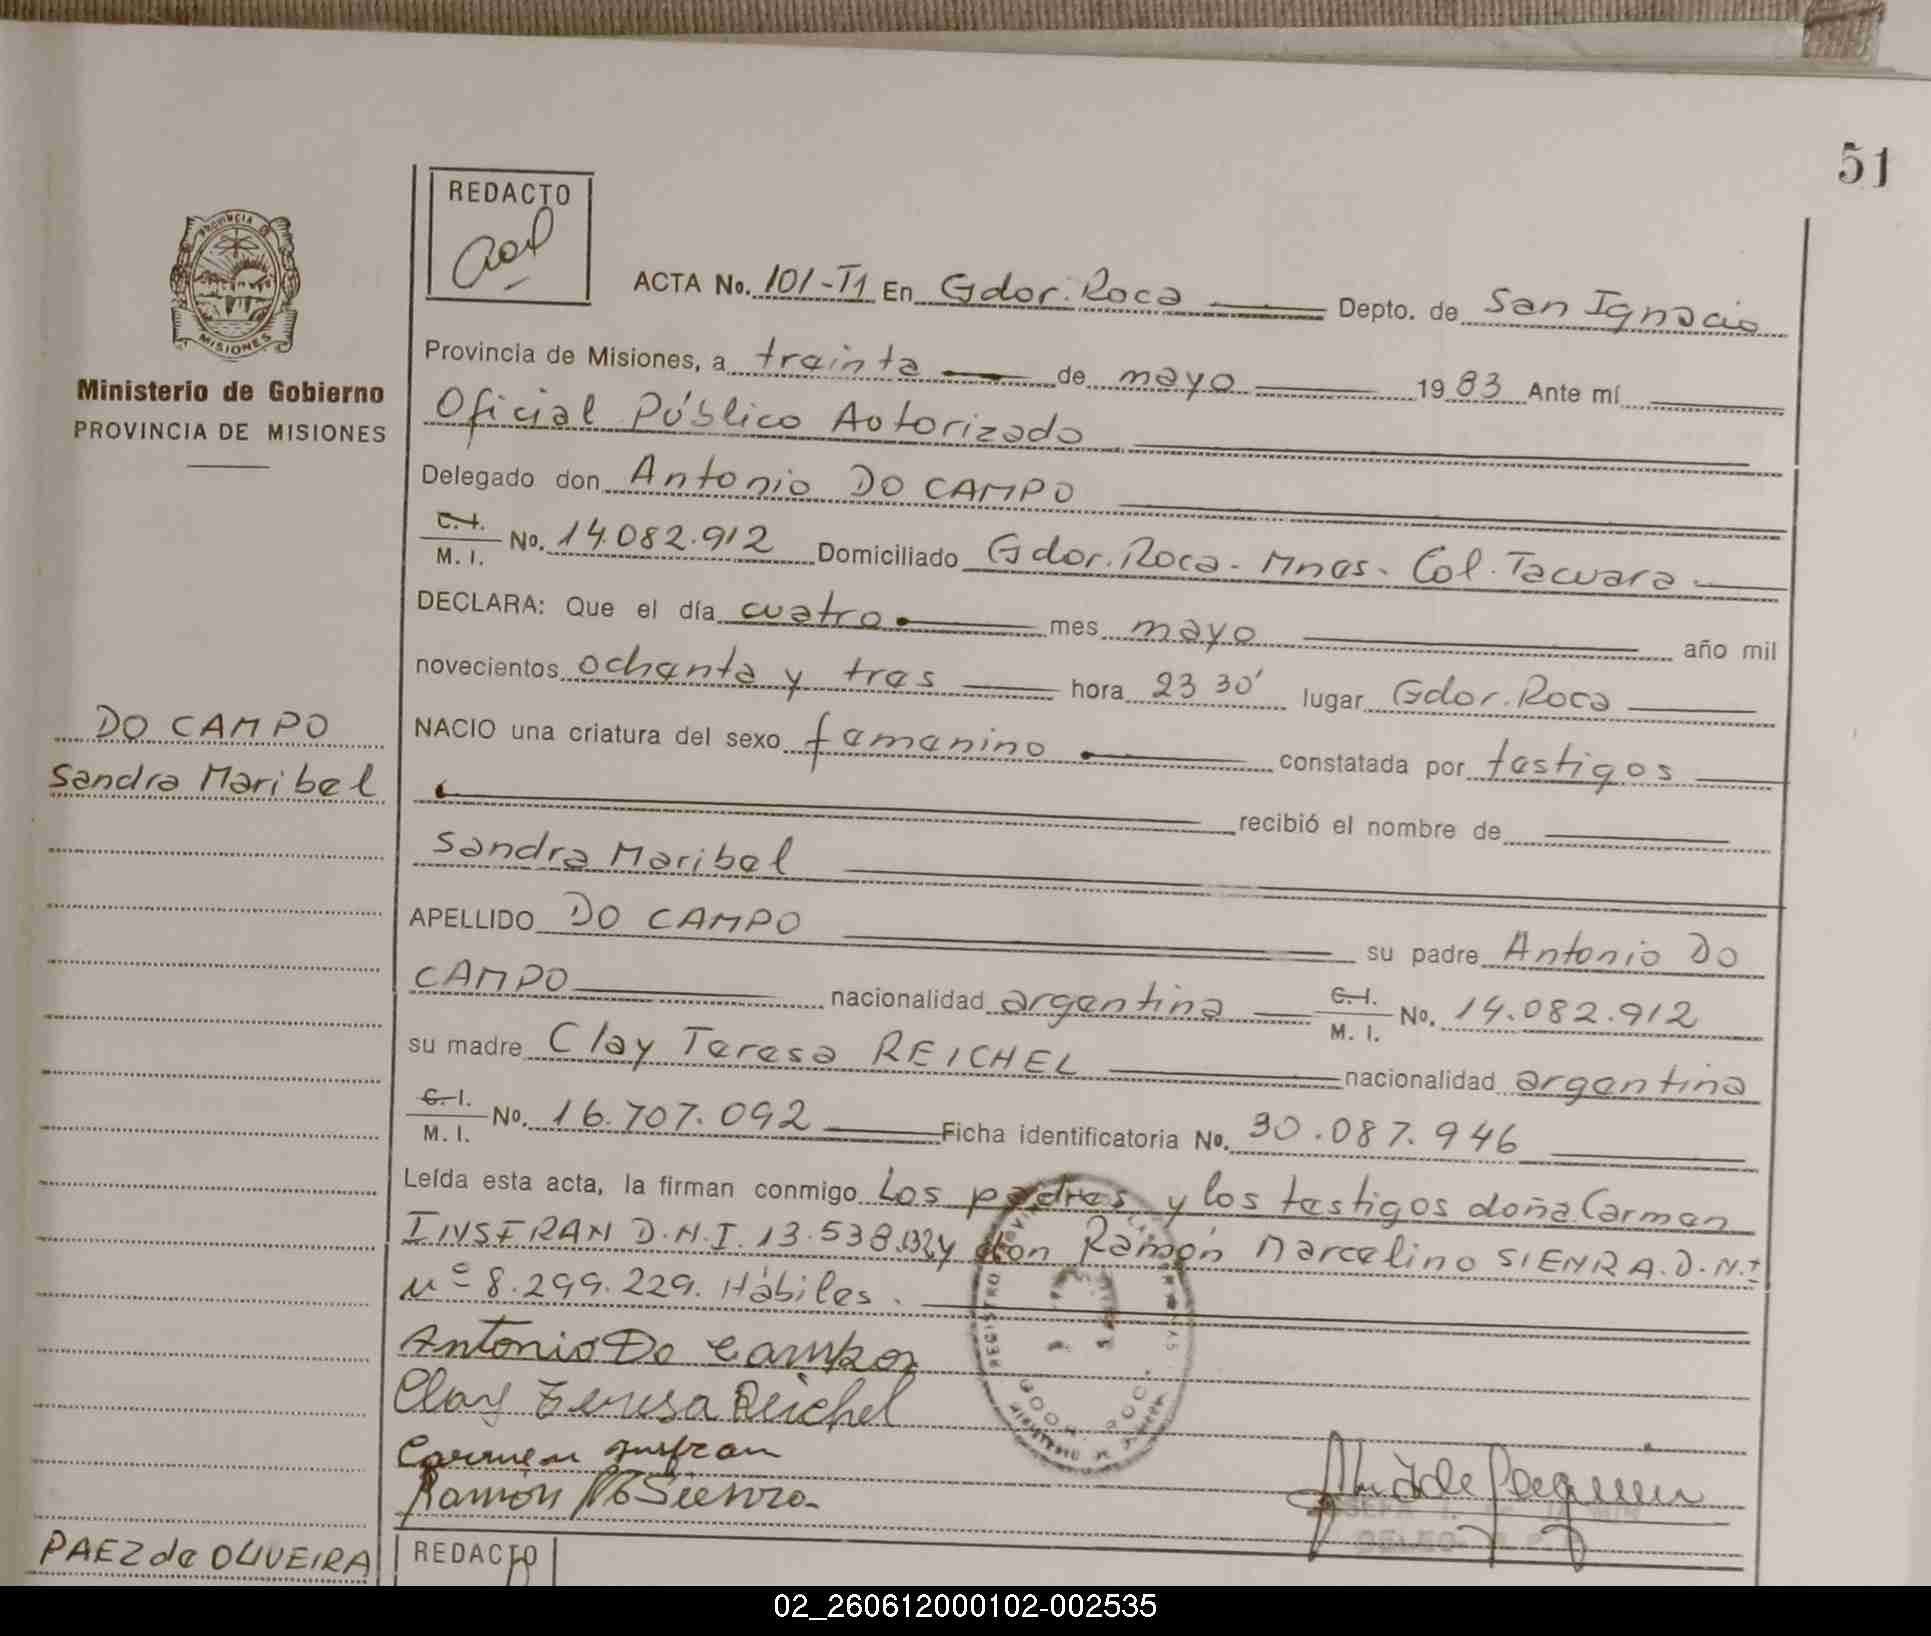 51
REDACTO
ACTA No. 101-T1 En Gdor. Roca Depto. de San Ignacio
PROVINCIA
MISIONES
Ministerio de Gobierno
PROVINCIA DE MISIONES
Provincia de Misiones, a treinta de mayo 1983 Ante mí
Oficial Público Autorizado
Delegado don Antonio DO CAMPO
C.I. M. I. No. 14.082.912 Domiciliado Gdor. Roca - Mnes - Col. Tacuara
DECLARA: Que el día cuatro mes mayo año mil
novecientos ochenta y tres hora 23 30' lugar Gdor. Roca
DO CAMPO
Sandra Maribel
NACIO una criatura del sexo femenino constatada por testigos
recibió el nombre de
Sandra Maribel
APELLIDO DO CAMPO su padre Antonio DO
CAMPO nacionalidad argentina C.I. M. I. No. 14.082.912
su madre Clay Teresa REICHEL nacionalidad argentina
C.I. M. I. No. 16.707.092 Ficha identificatoria No. 30.087.946
Leída esta acta, la firman conmigo Los padres y los testigos doña Carmen
INSFRAN D.N.I. 13.538.132 y don Ramón Marcelino SIENRA. D.N.I
nº 8.299.229. Hábiles.
Antonio Do Campo
Clay Teresa Reichel
Carmen Insfran
Ramón Mo Sienra
PAEZ de OLIVEIRA
REDACTO
02_260612000102-002535